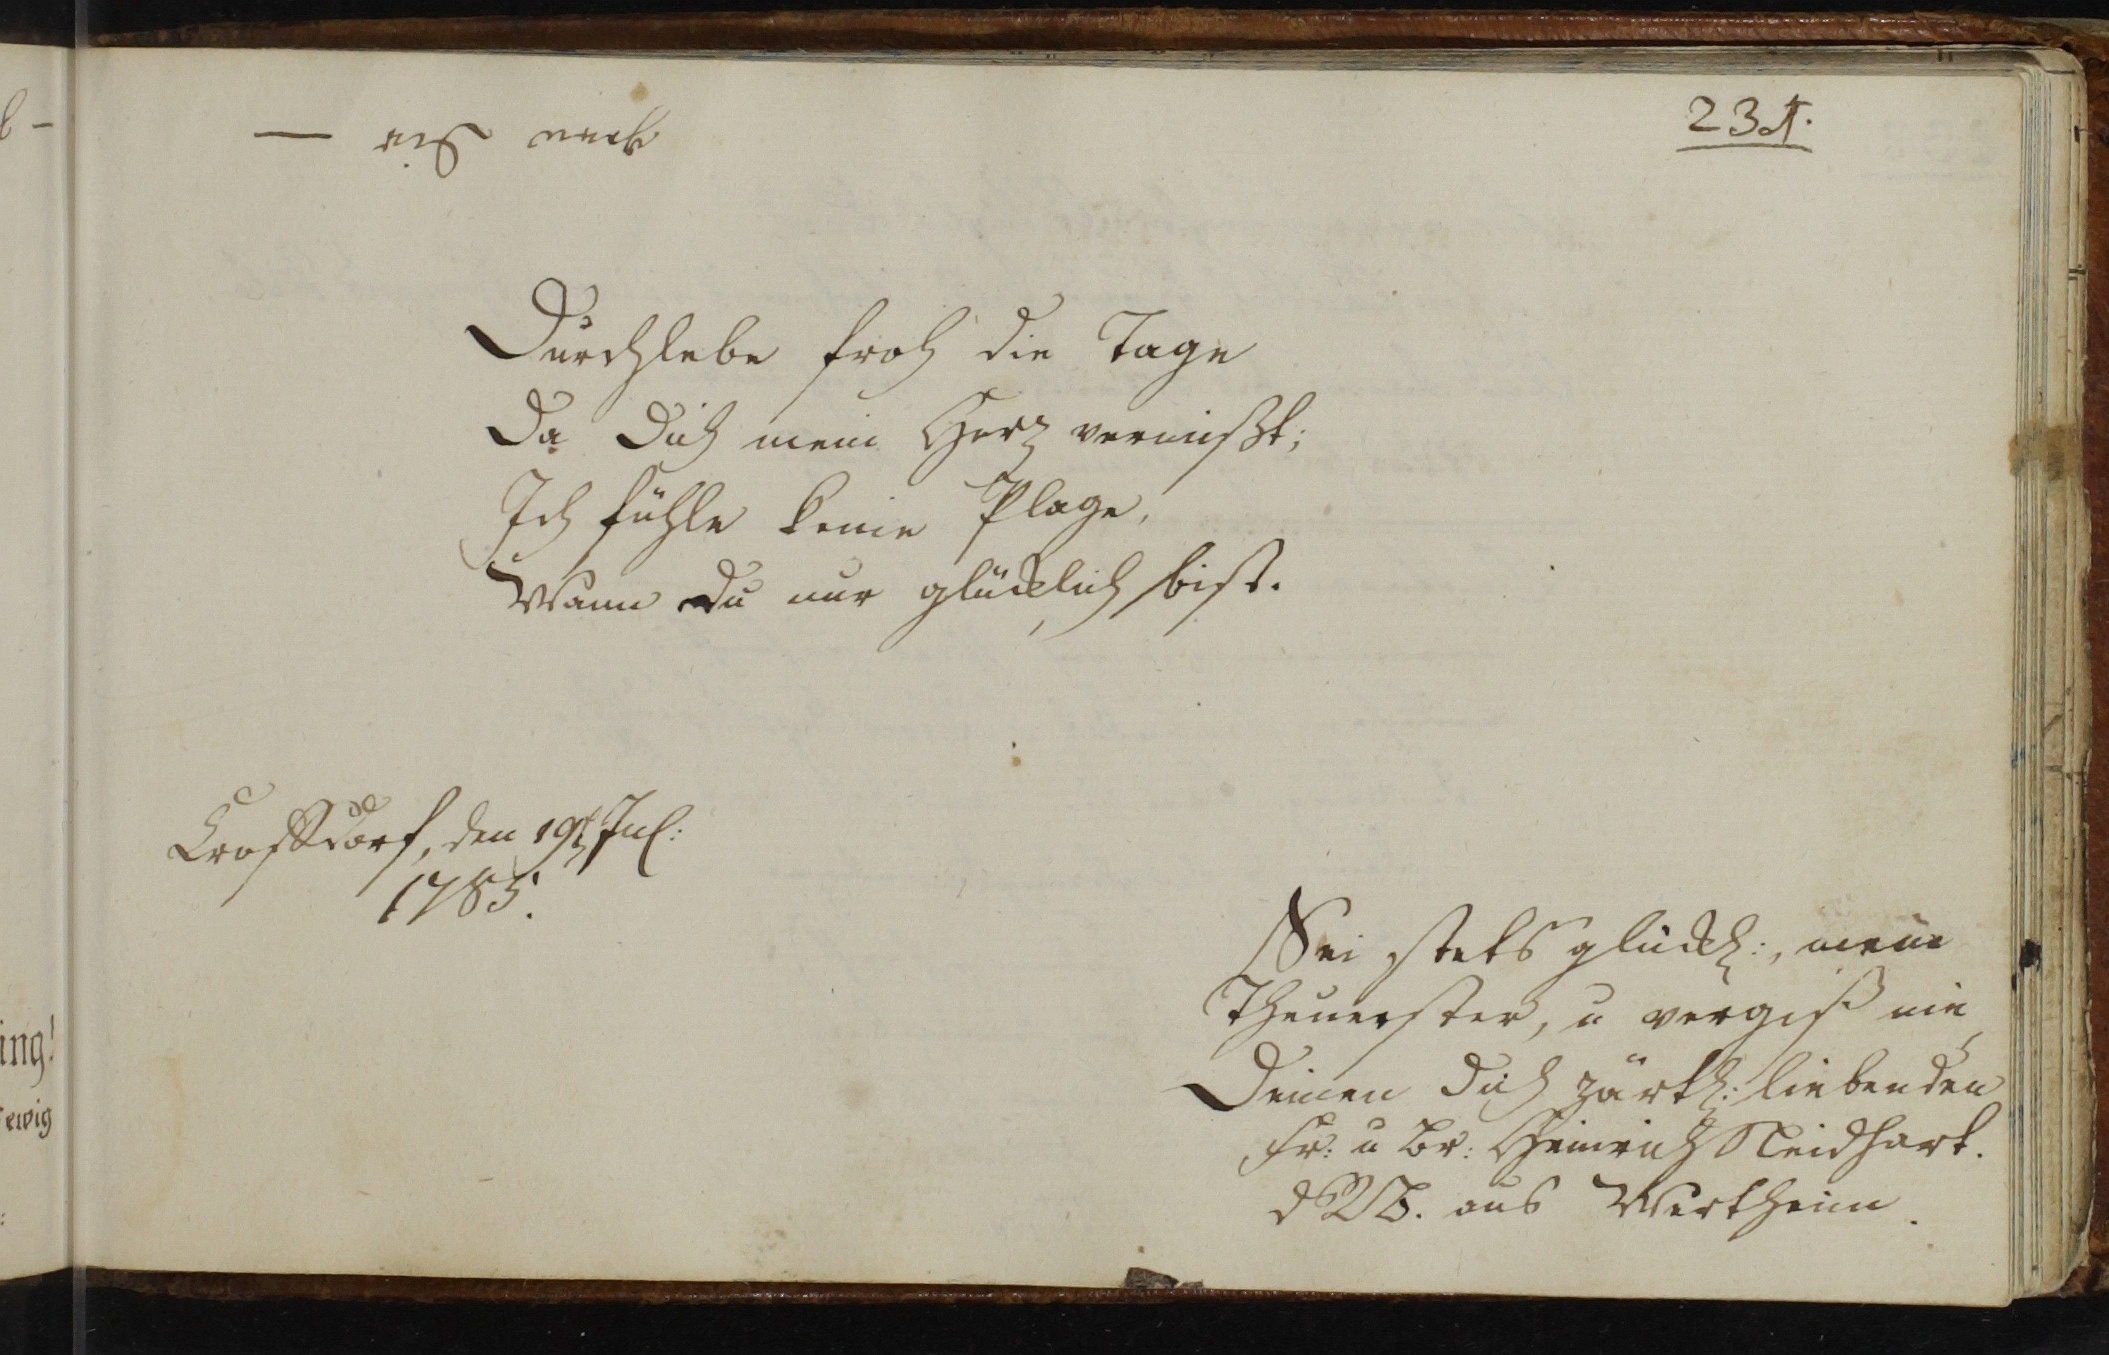 231.
Durchlebe froh die Tage
Da Dich mein Herz vermißt;
Ich fühle keine Plage,
Wann Du nur glücklich bist.
Croffdorf, den 19t Jul:
1785.
Sei stets glückl:, mein
Theuerster, u vergiß nie
Deinen Dich zärtl: liebenden
Fr: u Br: Heinrich Neidhart.
aus Wertheim.
ing!
ewig